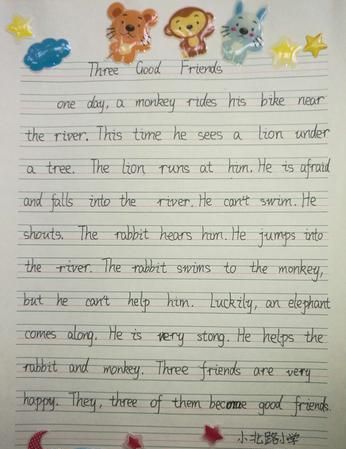 Three Good Friends
one day, a monkey rides his bike near
the river. This time he sees a lion under
a tree. The lion runs at him. He is afraid
and falls into the river. He can't swim. He
shouts. The rabbit hears him. He jumps into
the river. The rabbit swims to the monkey,
but he can't help him. Luckily, an elephant
comes along. He is very stong. He helps the
rabbit and monkey. Three friends are very
happy. They, three of them become good friends.
小北路小学